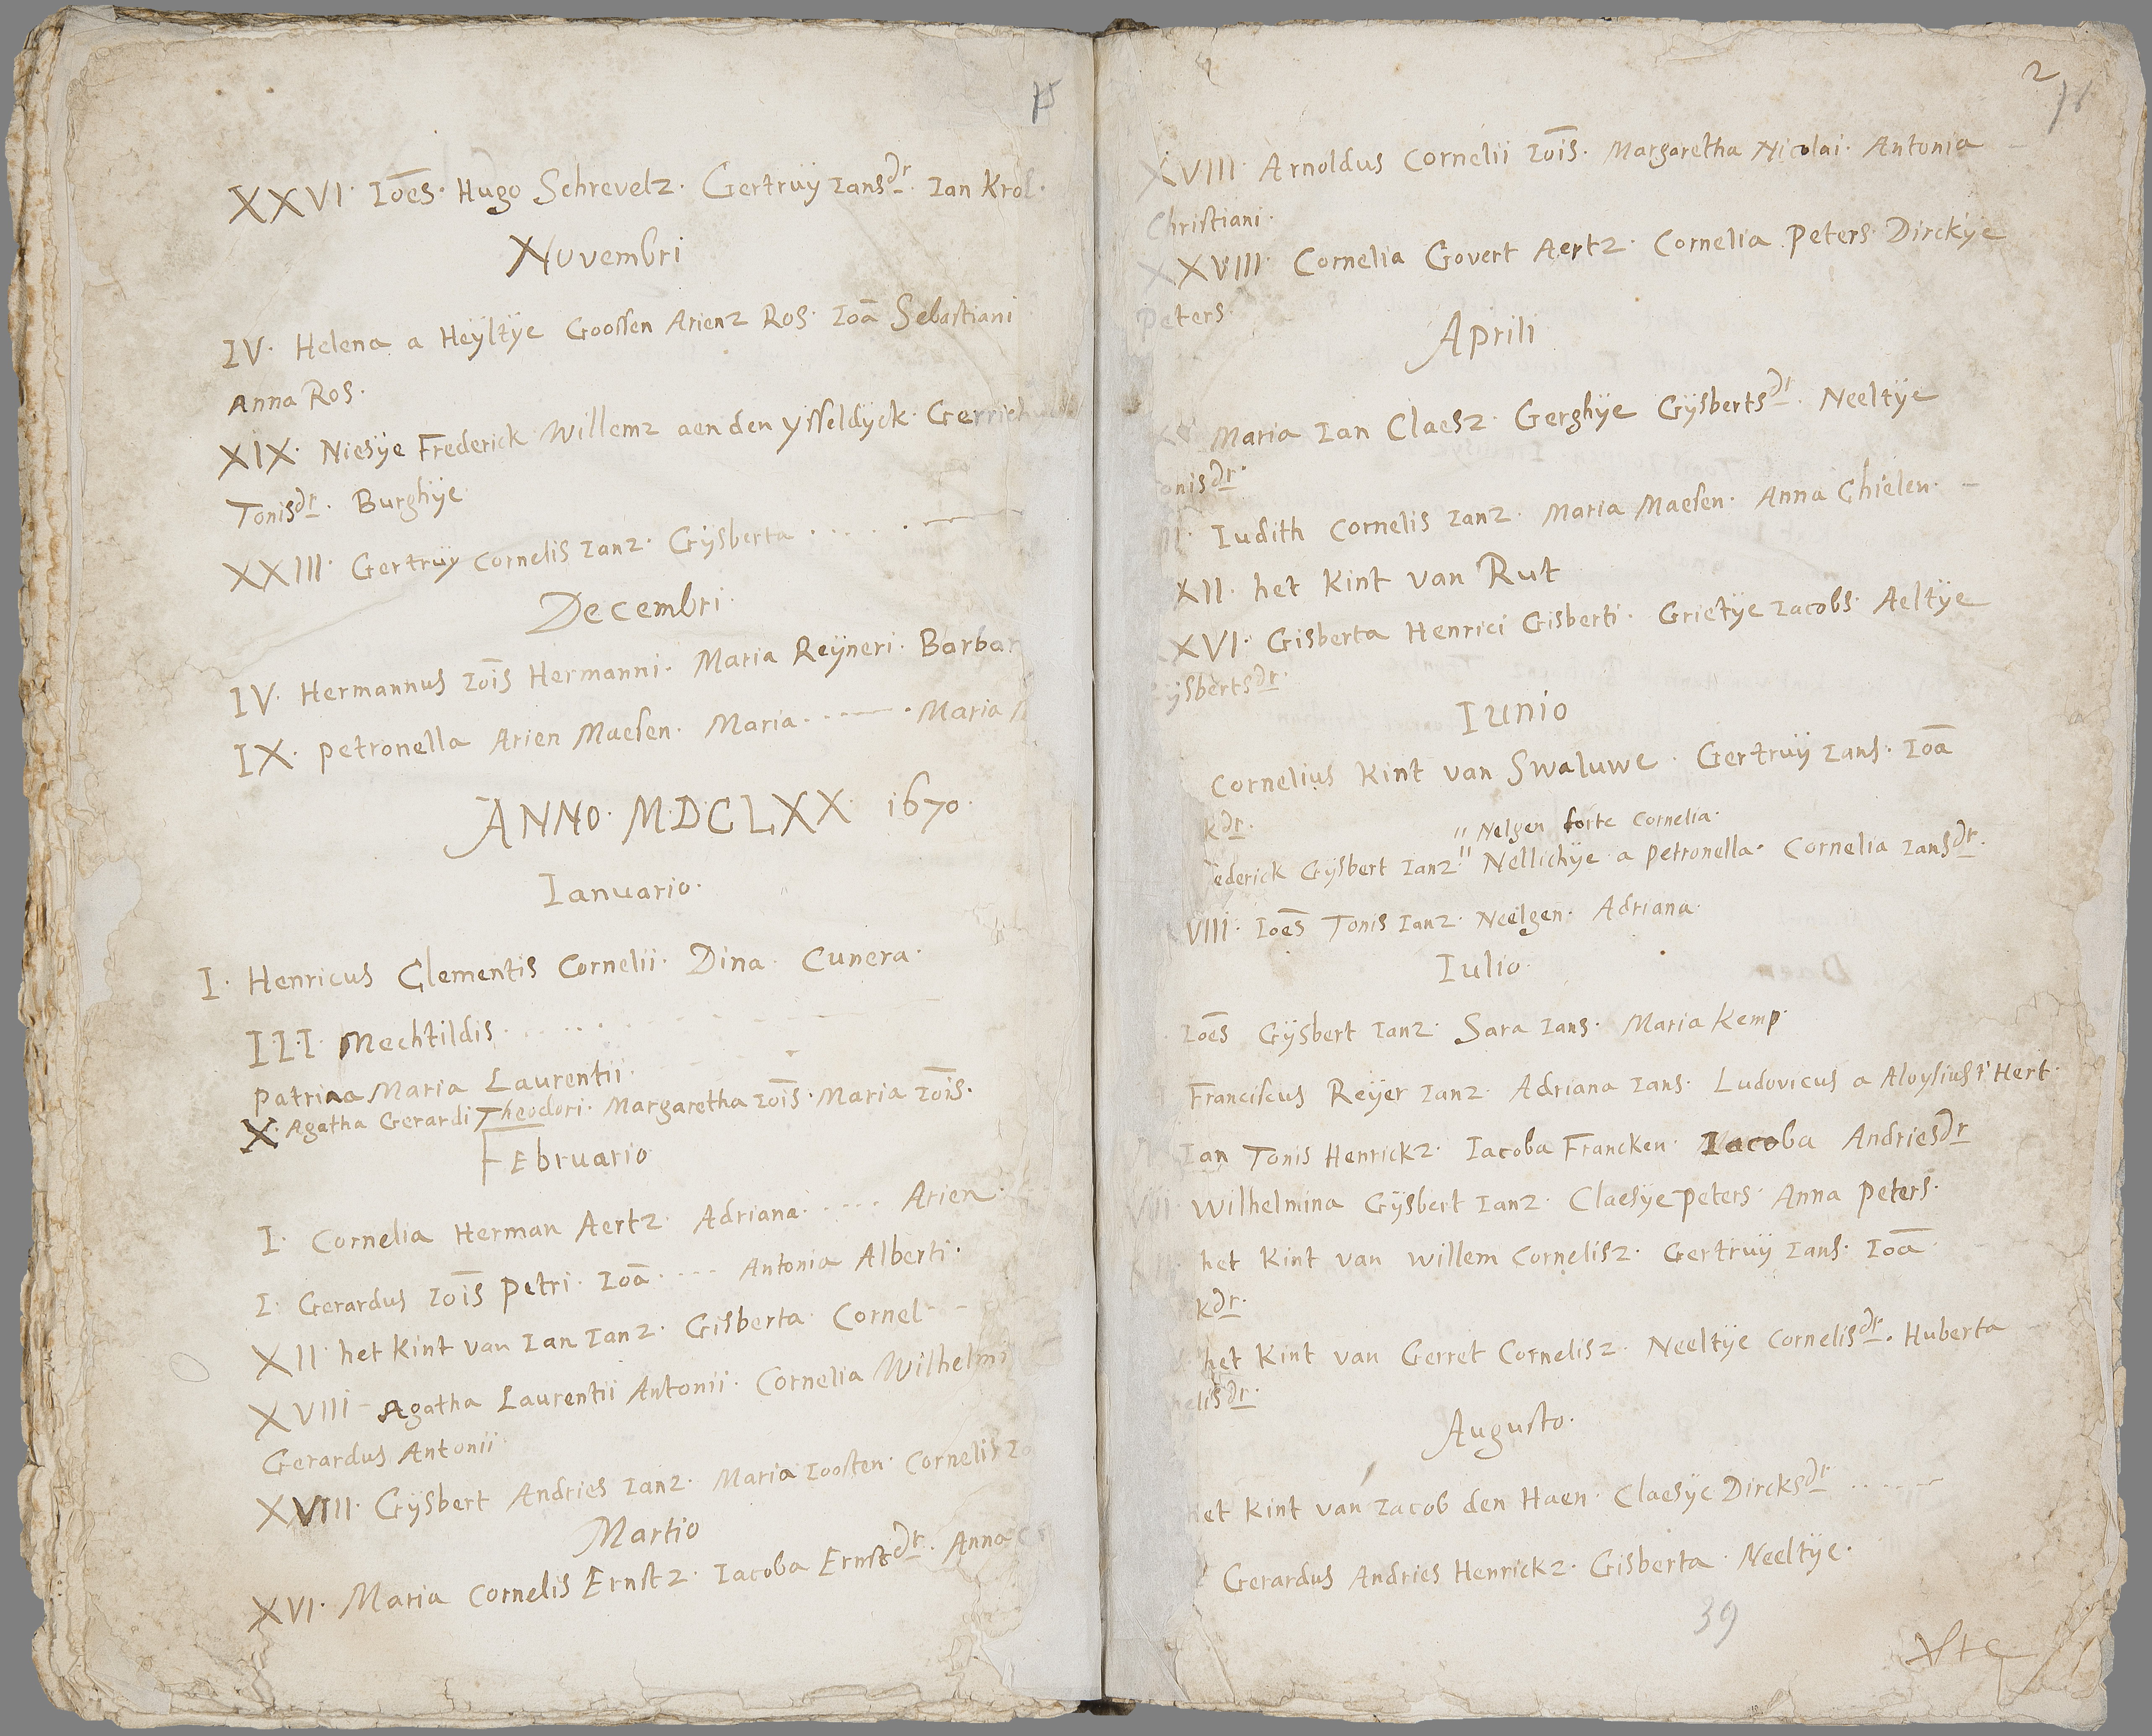 15
XXVI. Ioēs. Hugo Schrevelz. Gertruÿ Iansdr. Ian Krol.
Novembri
IV. Helena a Heÿltÿe Goossen Arienz Ros. Ioā Sebastiani
Anna Ros.
XIX. Niesÿe Frederick Willemz aen den ÿsseldÿck. Gerrich
Tonisdr. Burghÿe
XXIII. Gertruÿ Cornelis Ianz. Gÿsberta . . . . . —
Decembri.
IV. Hermannus Iōis Hermanni. Maria Reÿneri. Barbar
IX. Petronella Arien Maesen. Maria . . . — . Maria
ANNO. MDCLXX. 1670.
Ianuario.
I. Henricus Clementis Cornelii. Dina. Cunera.
III Mechtildis . . . . . .
Patrina Maria Laurentii.
X. Agatha Gerardi Theodori. Margaretha Iōis. Maria Iōis.
Februario
I. Cornelia Herman Aertz. Adriana . . . . . Arien.
I. Gerardus Iōis Petri. Ioā . . . . Antonia Alberti.
XII. het Kint van Ian Ianz. Gisberta. Cornel
XVIII Agatha Laurentii Antonii. Cornelia Wilhelmi
Gerardus Antonii.
XVIII. Gÿsbert Andries Ianz. Maria Ioosten. Cornelis Io
Martio
XVI. Maria Cornelis Ernstz. Iacoba Ernstdr. Anna
2
XVIII. Arnoldus Cornelii Iōis. Margaretha Nicolai. Antonia
Christiani.
XXVIII. Cornelia Govert Aertz. Cornelia Peters. Dirckÿe
Peters.
Aprili
Maria Ian Claesz. Gerghÿe Gÿsbertsdr. Neeltÿe
onisdr.
Iudith Cornelis Ianz. Maria Maesen. Anna Chielen. —
XII. het Kint van Rut
XVI. Gisberta Henrici Gisberti. Grietÿe Iacobs. Aeltÿe
ÿsbertsdr.
Iunio
Cornelius Kint van Swaluwe. Gertruÿ Ians. Ioā
kdr.
" Nelgen forte Cornelia.
ederick Gÿsbert Ianz " Nellichÿe a Petronella. Cornelia Iansdr.
VIII. Ioēs Tonis Ianz. Neelgen. Adriana.
Iulio.
Ioēs Gÿsbert Ianz. Sara Ians. Maria Kemp.
Franciscus Reÿer Ianz. Adriana Ians. Ludovicus a Aloysius t' Hert.
Ian Tonis Henrickz. Iacoba Francken. Iacoba Andriesdr
Wilhelmina Gÿsbert Ianz. Claesÿe Peters. Anna Peters.
het Kint van Willem Cornelisz. Gertruÿ Ians. Ioā
kdr.
het Kint van Gerret Cornelisz. Neeltÿe Cornelisdr. Huberta
elisdr.
Augusto.
het Kint van Iacob den Haen. Claesÿe Dircksdr . . . . . —
Gerardus Andries Henrickz. Gisberta. Neeltÿe.
39